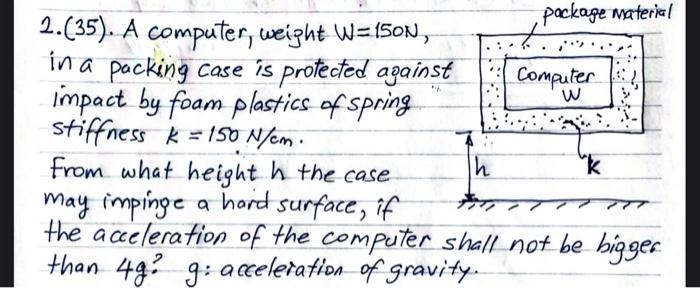 package material
2.(35). A computer, weight W=150N,
in a packing case is protected against
impact by foam plastics of spring
stiffness k = 150 N/cm.
From what height h the case
may impinge a hard surface, if
the acceleration of the computer shall not be bigger
than 4g? g: acceleration of gravity.
Computer
W
h
k